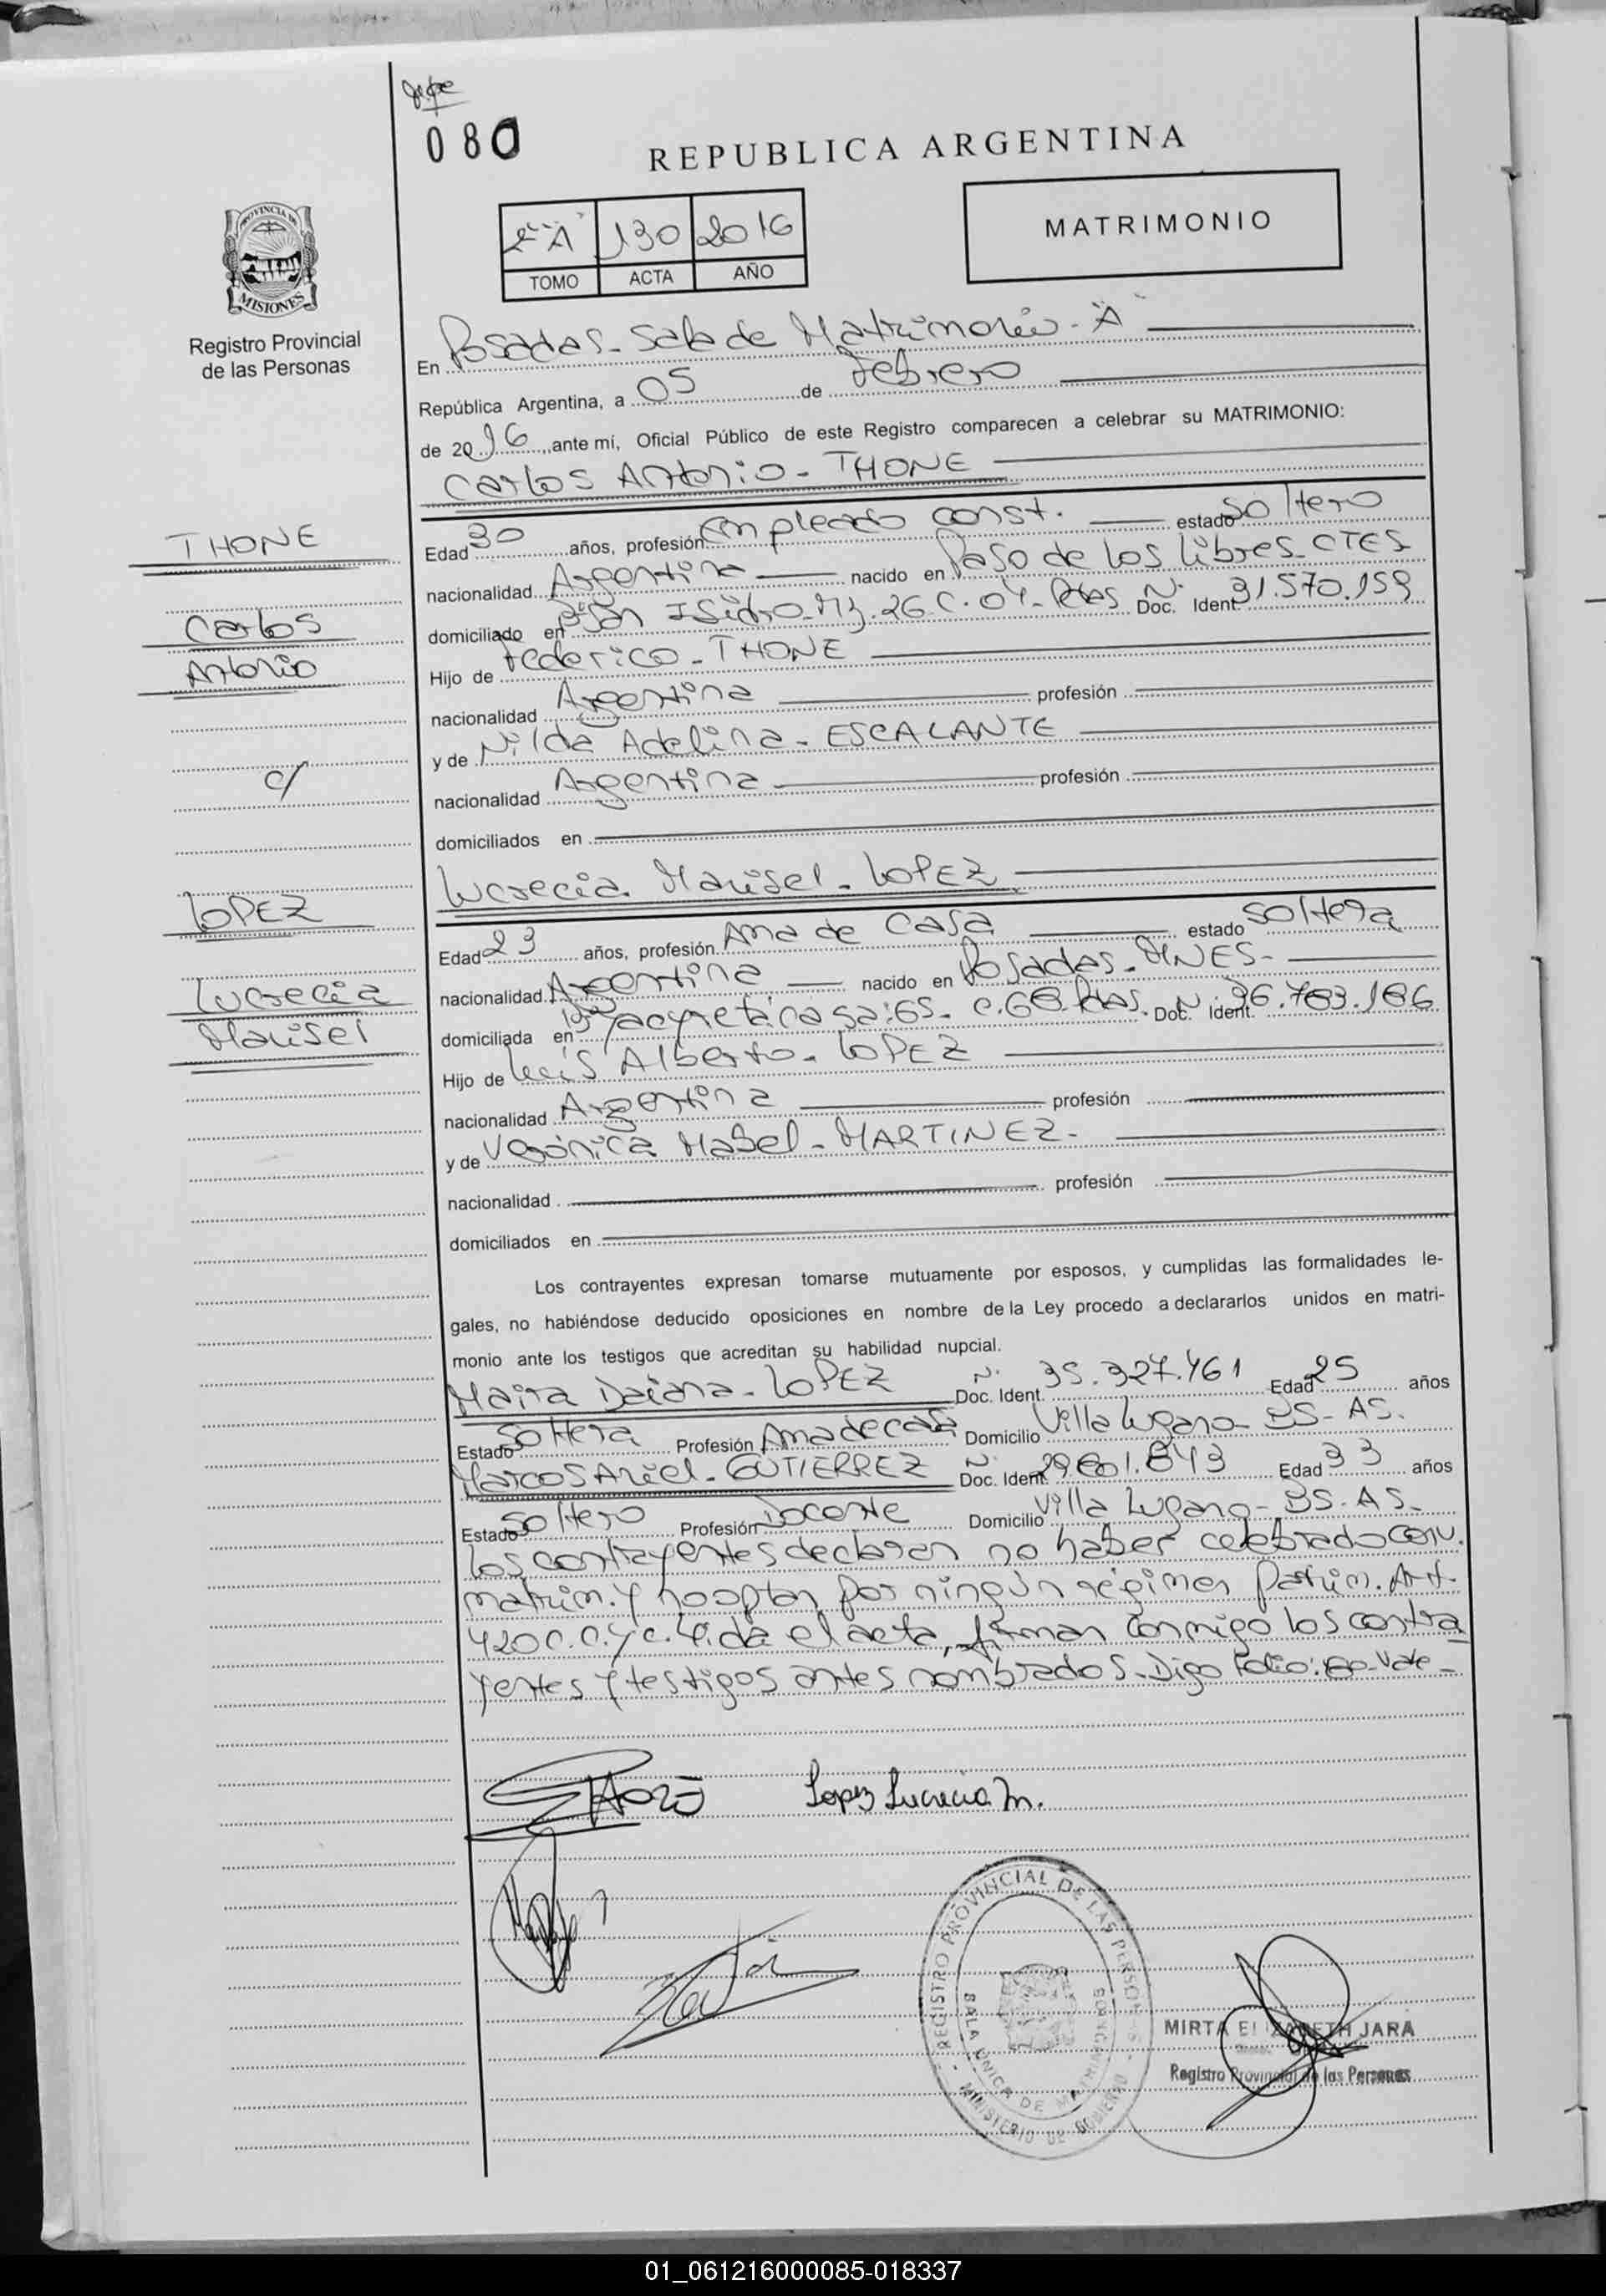 080
REPUBLICA ARGENTINA
PROVINCIA DE
MISIONES
Registro Provincial
de las Personas
"A" 130 2016
TOMO ACTA AÑO
MATRIMONIO
En Posadas - Sala de Matrimonio - "A"
República Argentina, a 05 de Febrero
de 2016, ante mí, Oficial Público de este Registro comparecen a celebrar su MATRIMONIO:
Carlos Antonio - THONE
THONE
Carlos
Antonio
c/
LOPEZ
Lucrecia
Marisel
Edad 30 años, profesión Empleado const. estado soltero
nacionalidad Argentina nacido en Paso de los Libres - CTES
domiciliado en San Isidro - Mz. 26 C. 04 - Pdas Doc. Ident. N° 31.570.159
Hijo de Federico - THONE
nacionalidad Argentina profesión
y de Nilda Adelina - ESCALANTE
nacionalidad Argentina profesión
domiciliados en
Lucrecia Marisel - LOPEZ
Edad 23 años, profesión Ama de Casa estado soltera
nacionalidad Argentina nacido en Posadas - MNES -
domiciliada en Yacyretá casa: 65 - Pdas. Doc. Ident. N° 36.783.186
Hijo de Luis Alberto - LOPEZ
nacionalidad Argentina profesión
y de Verónica Mabel - MARTINEZ -
nacionalidad profesión
domiciliados en
Los contrayentes expresan tomarse mutuamente por esposos, y cumplidas las formalidades le-
gales, no habiéndose deducido oposiciones en nombre de la Ley procedo a declararlos unidos en matri-
monio ante los testigos que acreditan su habilidad nupcial.
Maira Daiana - LOPEZ Doc. Ident. N° 35.327.461 Edad 25 años
Estado soltera Profesión Ama de casa Domicilio Villa Lugano - BS - AS.
Marcos Ariel - GUTIERREZ Doc. Ident. N° 29.601.843 Edad 33 años
Estado soltero Profesión Docente Domicilio Villa Lugano - BS. AS -
los contrayentes declaran no haber celebrado conv.
matrim. y no optan por ningún régimen Patrim. Art.
420 C.C. y C. Leida el acta, firman conmigo los contra
yentes y testigos antes nombrados - Digo Folio: 80 - Vale -
Lopez Lucrecia M.
REGISTRO PROVINCIAL DE LAS PERSONAS
SALA UNICA DE MATRIMONIOS
MINISTERIO DE GOBIERNO
MIRTA ELIZABETH JARA
Registro Provincial de las Personas
01_061216000085-018337